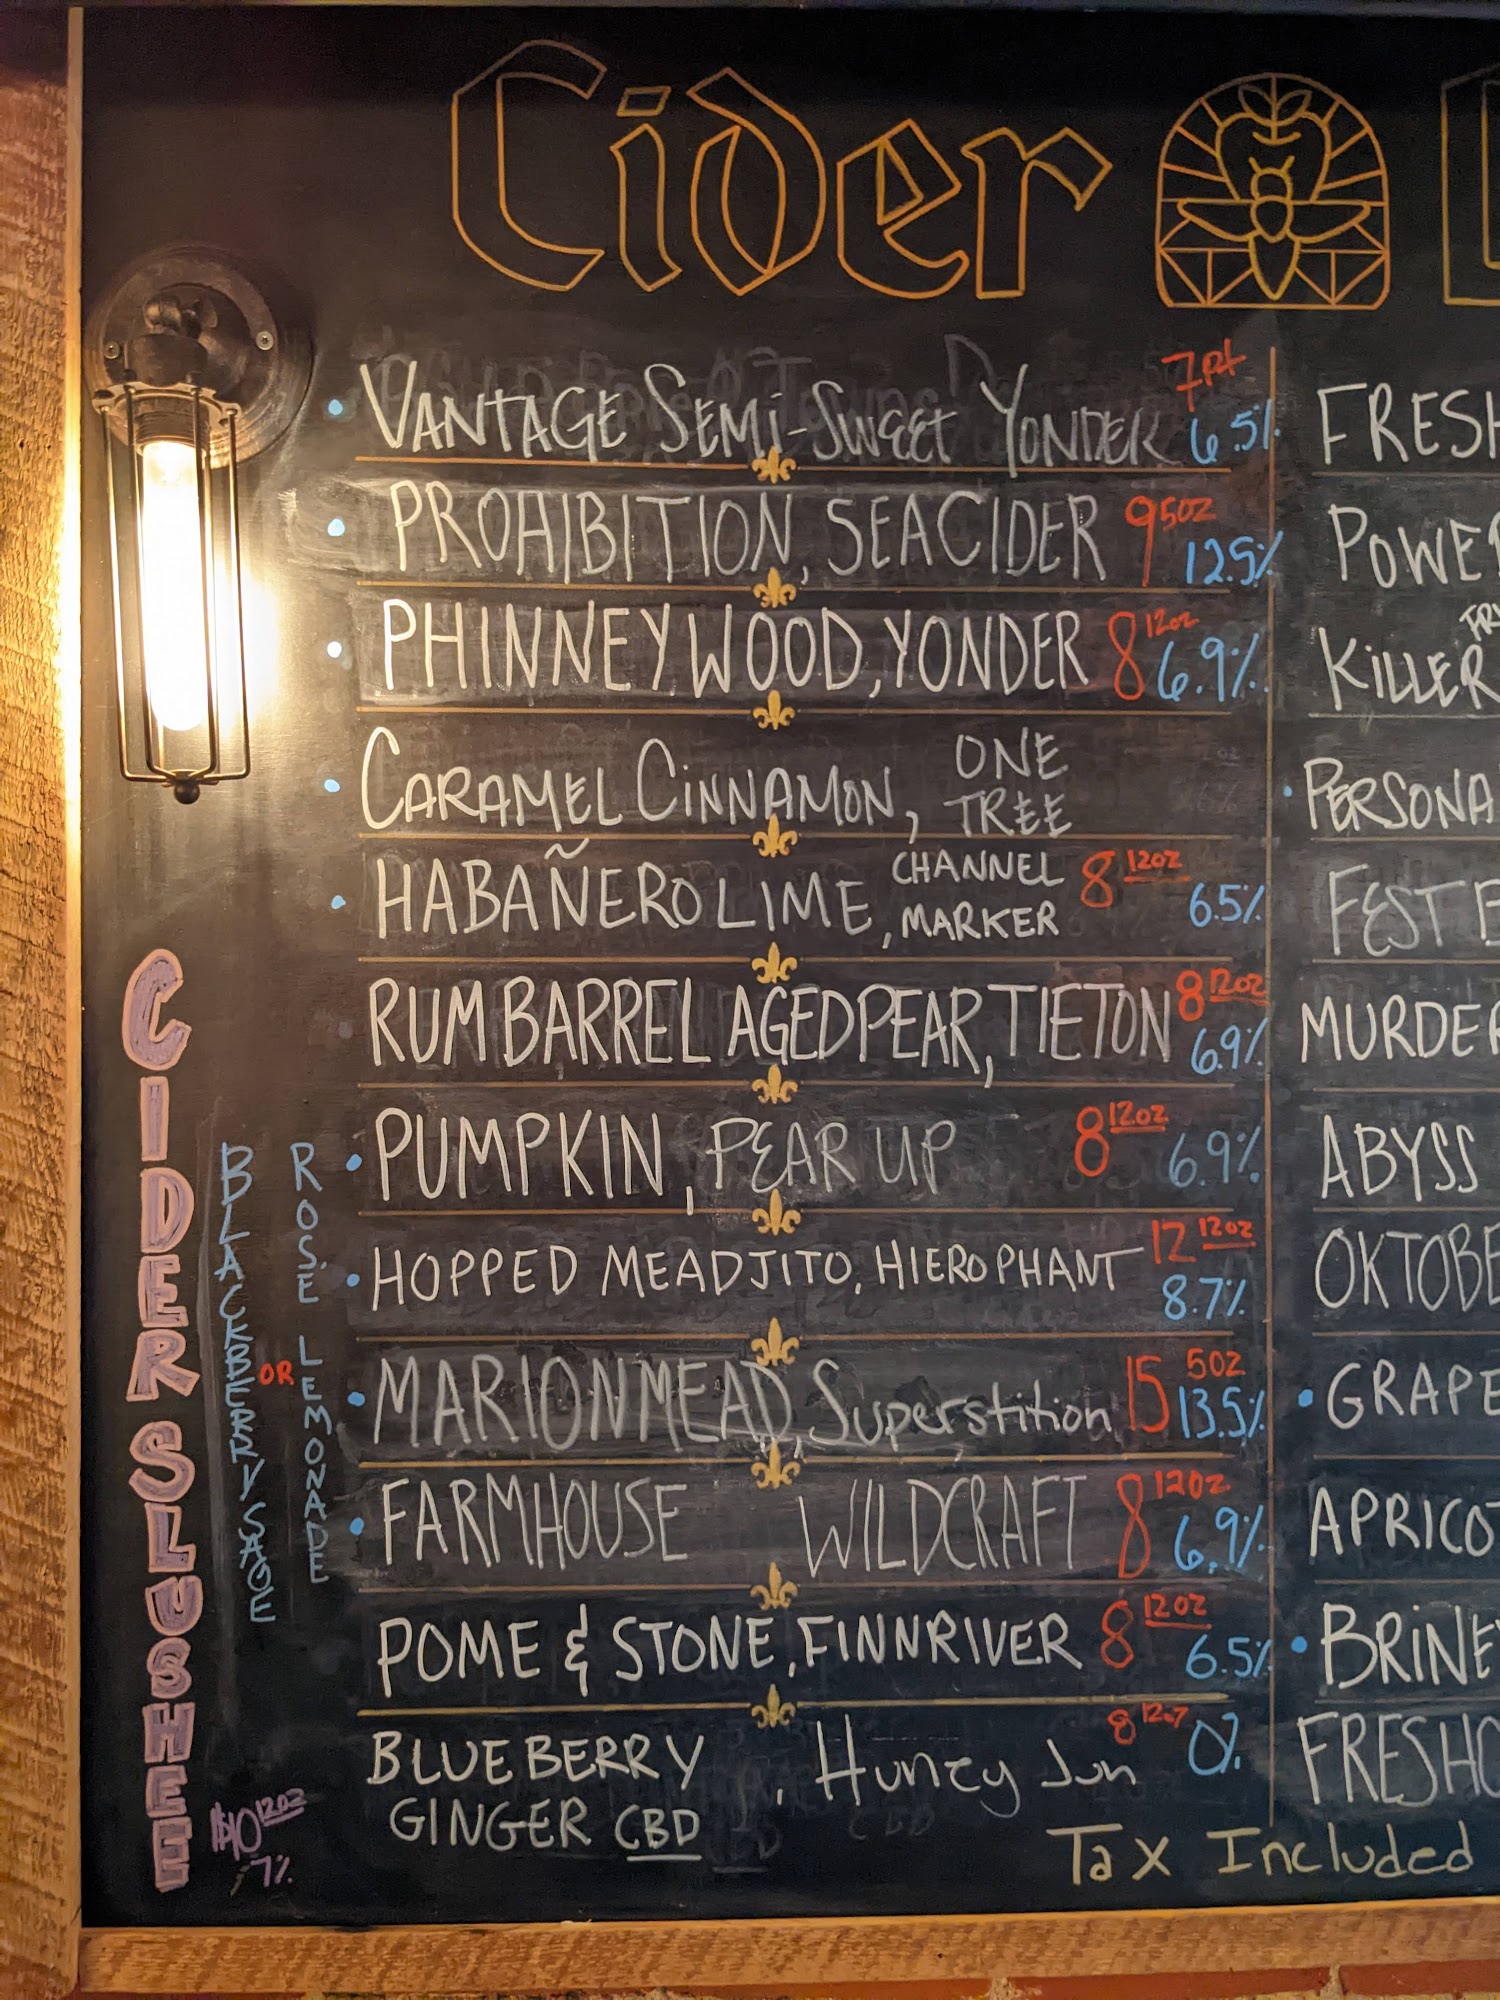 Cider
VANTAGE SEMi-SWEET YONDER 7 Pt 6.5%
PROHIBITION, SEACIDER 9 5OZ 12.5%
PHINNEYWOOD, YONDER 8 12oz 6.9%
CARAMEL CiNNAMON, ONE TREE
HABAÑERO LIME, CHANNEL MARKER 8 12OZ 6.5%
RUM BARREL AGED PEAR, TIETON 8 12OZ 6.9%
PUMPKIN, PEAR UP 8 12oz 6.9%
HOPPED MEADJITO, HIEROPHANT 12 12OZ 8.7%
MARIONMEAD, Superstition 15 5OZ 13.5%
FARMHOUSE WILDCRAFT 8 12OZ 6.9%
POME & STONE, FINNRIVER 8 12OZ 6.5%
BLUEBERRY GINGER CBD, Huney Jun 8 12oz 0%
Tax Included
CIDER SLUSHEE
BLACKBERRY SAGE
OR
ROSÉ LEMONADE
$10 12OZ
7%
FRESH
POWE
KiLLER
PERSONA
FEST
MURDER
ABYSS
OKTOBE
GRAPE
APRICO
BRINE
FRESH